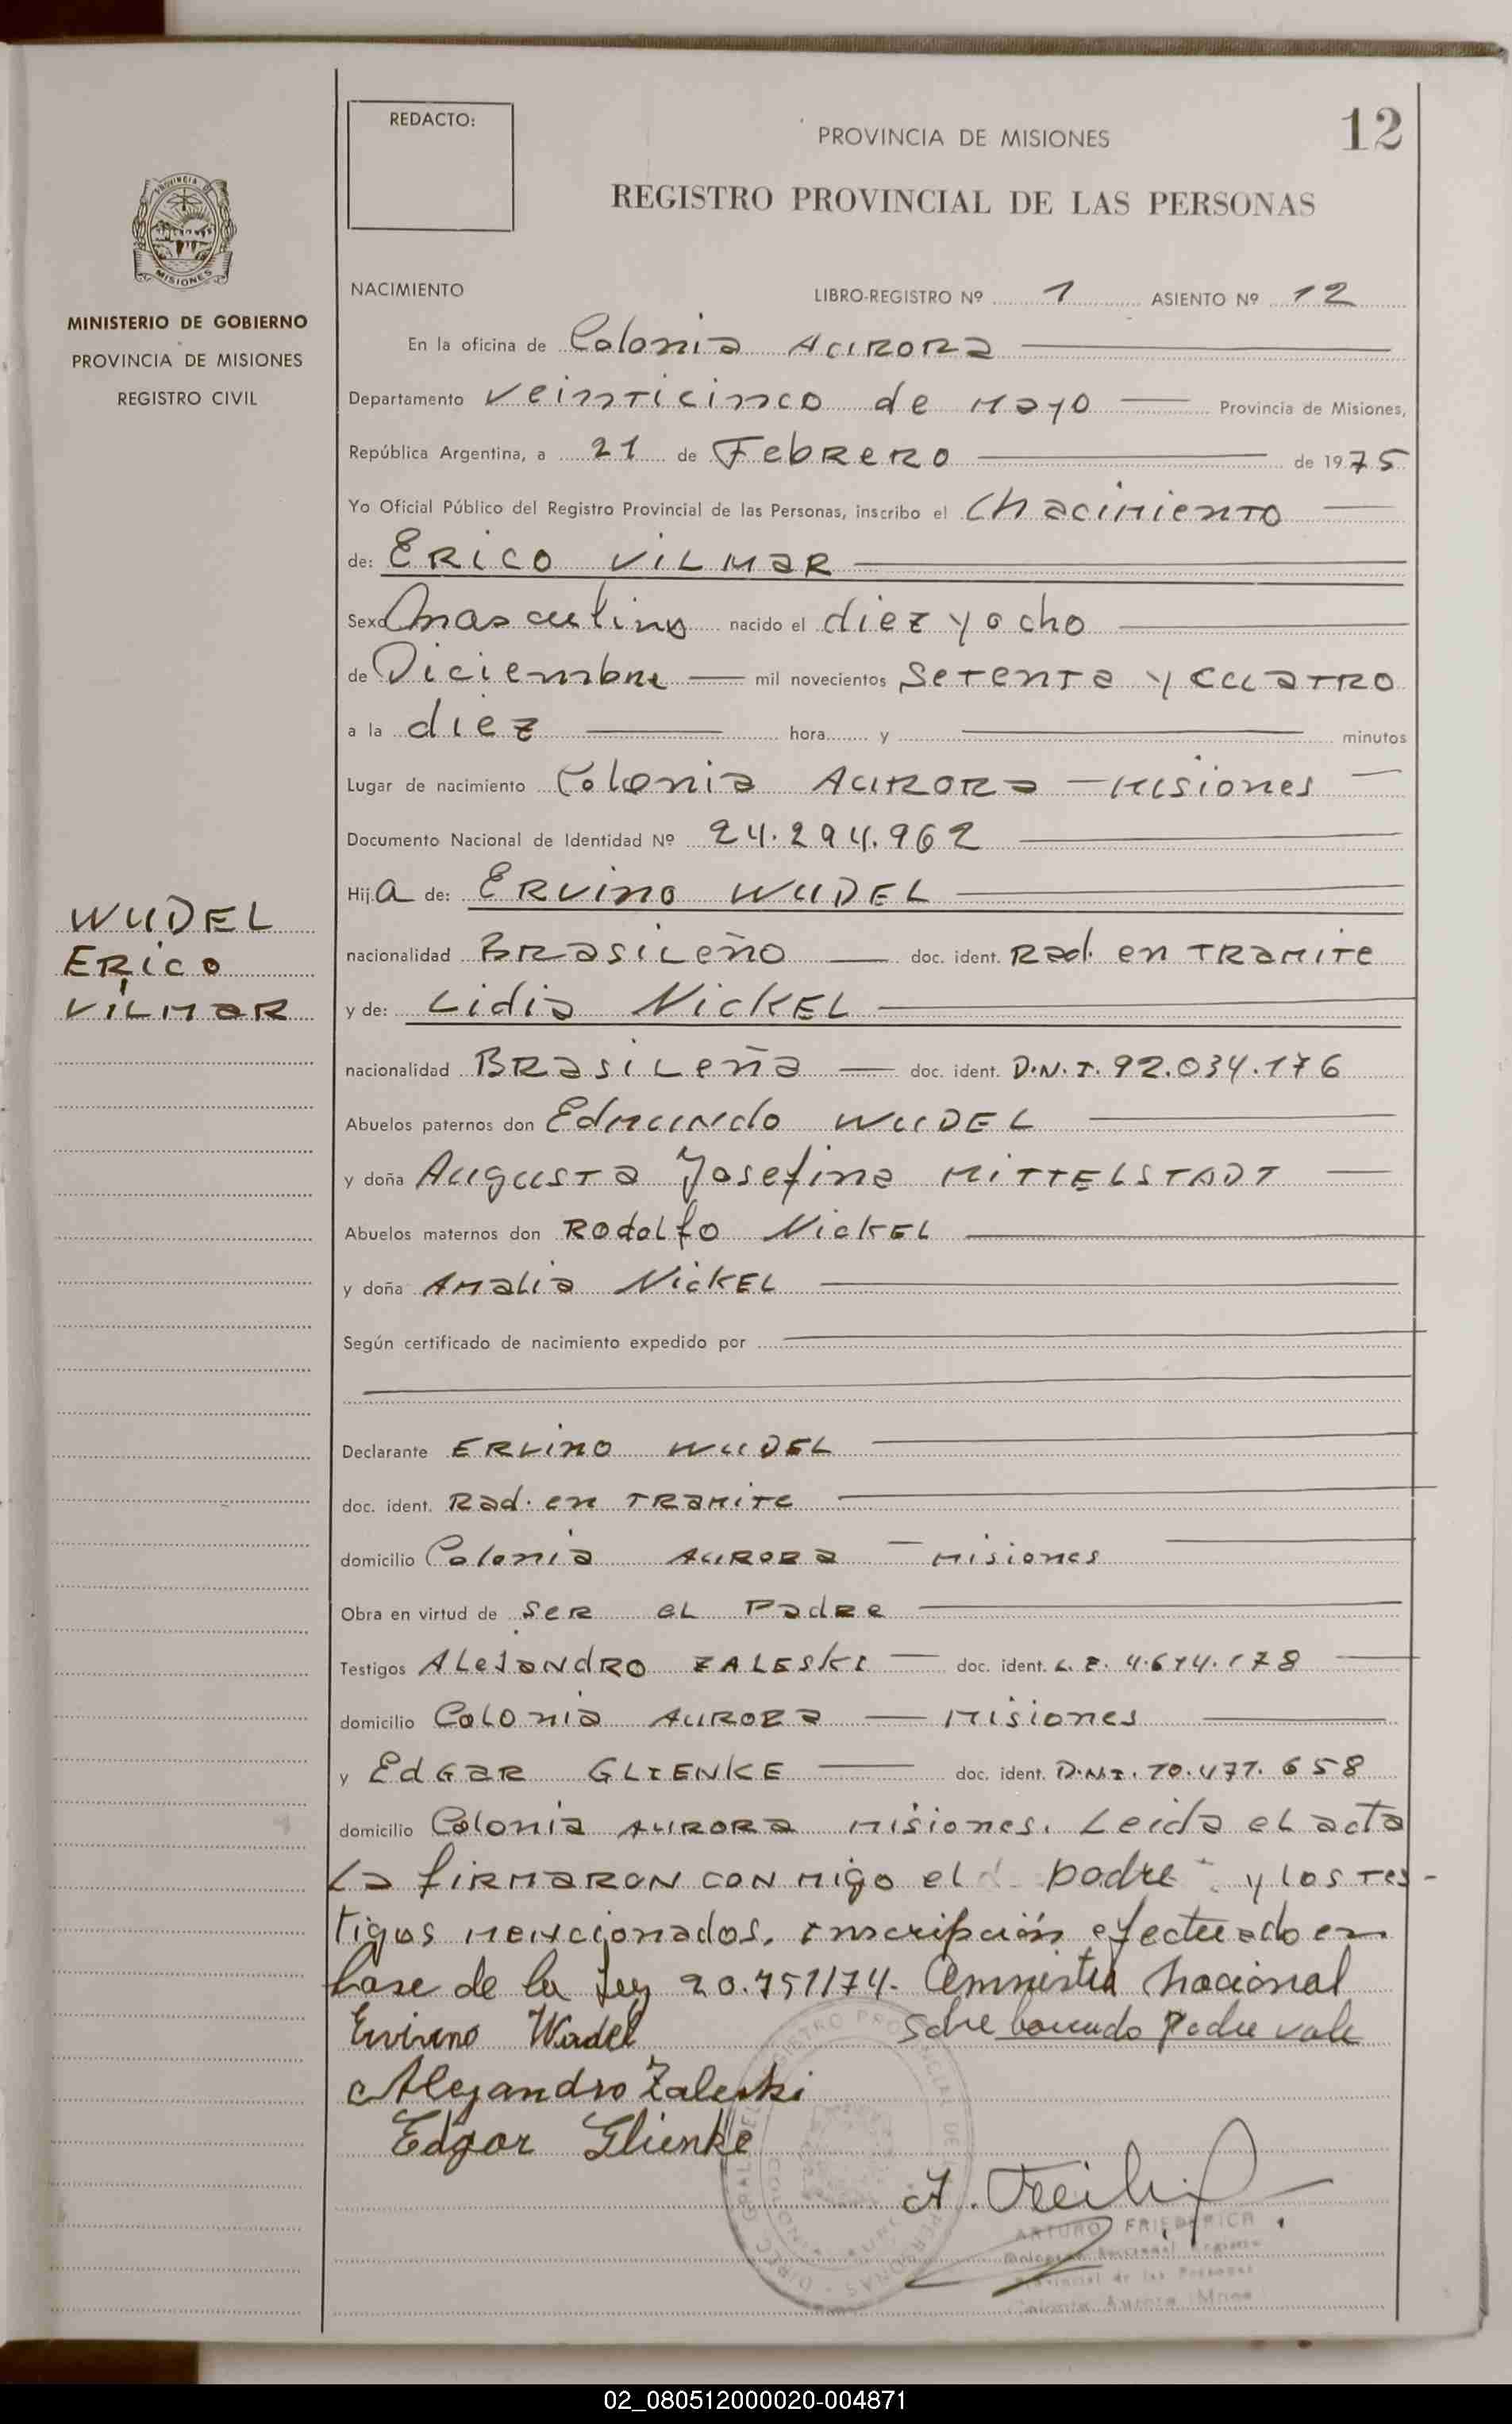 REDACTO:
PROVINCIA DE MISIONES
12
REGISTRO PROVINCIAL DE LAS PERSONAS
PROVINCIA DE
MISIONES
MINISTERIO DE GOBIERNO
PROVINCIA DE MISIONES
REGISTRO CIVIL
NACIMIENTO LIBRO-REGISTRO Nº 1 ASIENTO Nº 12
En la oficina de Colonia AURORA
Departamento Veinticinco de Mayo Provincia de Misiones,
República Argentina, a 21 de Febrero de 1975
Yo Oficial Público del Registro Provincial de las Personas, inscribo el Nacimiento
de: ERICO VILMAR
Sexo Masculino nacido el diez y ocho
de Diciembre mil novecientos Setenta y cuatro
a la diez hora y minutos
Lugar de nacimiento Colonia AURORA - Misiones
Documento Nacional de Identidad Nº 24.294.962
Hija de: ERVINO WUDEL
WUDEL
ERICO
VILMAR
nacionalidad BRASILEÑO doc. ident. Rad. en TRAMITE
y de: Lidia NICKEL
nacionalidad BRASILEÑA doc. ident. D.N.I. 92.034.176
Abuelos paternos don Edmundo WUDEL
y doña Augusta Josefina MITTELSTADT
Abuelos maternos don Rodolfo NICKEL
y doña Amalia NICKEL
Según certificado de nacimiento expedido por
Declarante ERVINO WUDEL
doc. ident. Rad. en TRAMITE
domicilio Colonia AURORA - Misiones
Obra en virtud de ser el Padre
Testigos Alejandro ZALESKI doc. ident. L.E. 4.674.178
domicilio Colonia AURORA - Misiones
y Edgar GLIENKE doc. ident. D.N.I. 10.477.658
domicilio Colonia AURORA Misiones. Leida el acta
la firmaron con migo el padre y los tes-
tigos mencionados. Inscripción efectuado en
base de la Ley 20.751/74. Amnistia Nacional
Ervino Wudel Sobre borrado Padre vale
Alejandro Zaleski
Edgar Glienke
ARTURO FRIEDERICH
Provincial de las Personas
Colonia Aurora (Mnes
02_080512000020-004871